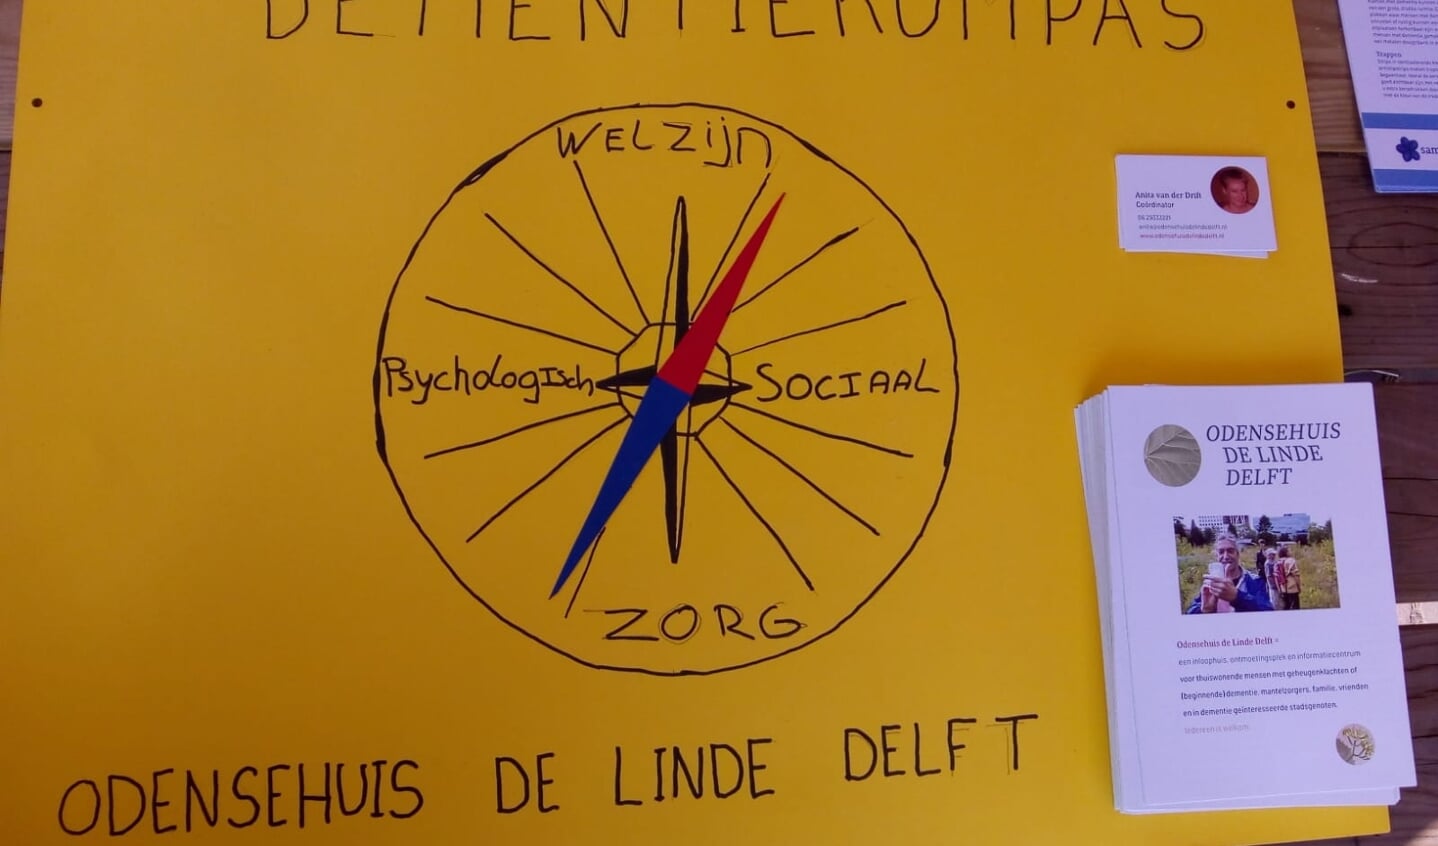 DEMENTIEKOMPAS
WELZIJN
Psychologisch
SOCIAAL
ZORG
ODENSEHUIS DE LINDE DELFT
Anita van der Drift
Coördinator
www.odensehuisdelindedelft.nl
Trappen
sam
ODENSEHUIS
DE LINDE
DELFT
Odensehuis de Linde Delft =
een inloophuis, ontmoetingsplek en informatiecentrum
voor thuiswonende mensen met geheugenklachten of
(beginnende) dementie, mantelzorgers, familie, vrienden
en in dementie geïnteresseerde stadsgenoten.
Iedereen is welkom.